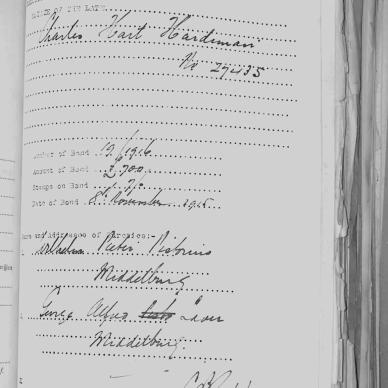 ESTATE OF THE LATE
Charles Hart Hardiman
No 27435
Number of Bond 19/1916
Amount of Bond £ 700
Stamps on Bond
Date of Bond 8th November 1915
Name and Addresses of Sureties:-
Wilhelm Pieter Pistorius
Middelburg
George Alfred
Middelburg